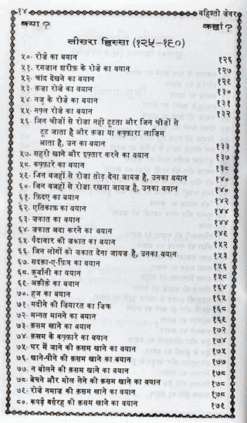 १४ बहिश्ती ज़ेवर
क्या? कहां?
तीसरा हिस्सा (१२५-१९०)
५०. रोज़े का बयान १२६
५१. रमज़ान शरीफ़ के रोज़े का बयान
५२. चांद देखने का बयान
५३. क़ज़ा रोज़े का बयान
५४. नज़्र के रोज़े का बयान
५५. नफ़्ल रोज़े का बयान
५६. जिन चीज़ों से रोज़ा नहीं टूटता और जिन चीज़ों से
टूट जाता है और क़ज़ा या कफ़्फ़ारा लाज़िम
आता है, उन का बयान १३३
५७. सहरी खाने और इफ़्तार करने का बयान
५८. कफ़्फ़ारे का बयान
५९. जिन वजहों से रोज़ा तोड़ देना जायज़ है, उनका बयान १४०
६०. जिन वजहों से रोज़ा रखना जायज़ है, उनका बयान १४०
६१. फ़िदए का बयान
६२. एतिकाफ़ का बयान
६३. ज़कात का बयान
६४. ज़कात अदा करने का बयान
६५. पैदावार की ज़कात का बयान
६६. जिन लोगों को ज़कात देना जायज़ है, उनका बयान
६७. सदक़ा-ए-फ़ित्र का बयान
६८. क़ुर्बानी का बयान
६९. अक़ीक़े का बयान
७०. हज का बयान
७१. मदीने की ज़ियारत का ज़िक्र
७२. मन्नत मानने का बयान
७३. क़सम खाने का बयान
७४. क़सम के कफ़्फ़ारे का बयान
७५. घर में जाने की क़सम खाने का बयान
७६. खाने-पीने की क़सम खाने का बयान
७७. न बोलने की क़सम खाने का बयान १७८
७८. बेचने और मोल लेने की क़सम खाने का बयान १७८
७९. रोज़े नमाज़ की क़सम खाने का बयान
८०. कपड़े वग़ैरह की क़सम खाने का बयान १७९